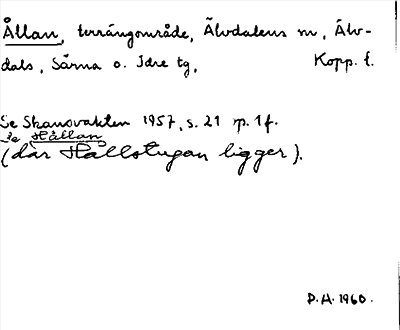 Ållan, terrängområde, Älvdalens sn, Älv-
dals, Särna o. Idre tg, Kopp. l.
Se Skansvakten 1957, s. 21 sp. 1 f.
Se Hållan
(där Hållstugan ligger).
D.A. 1960.